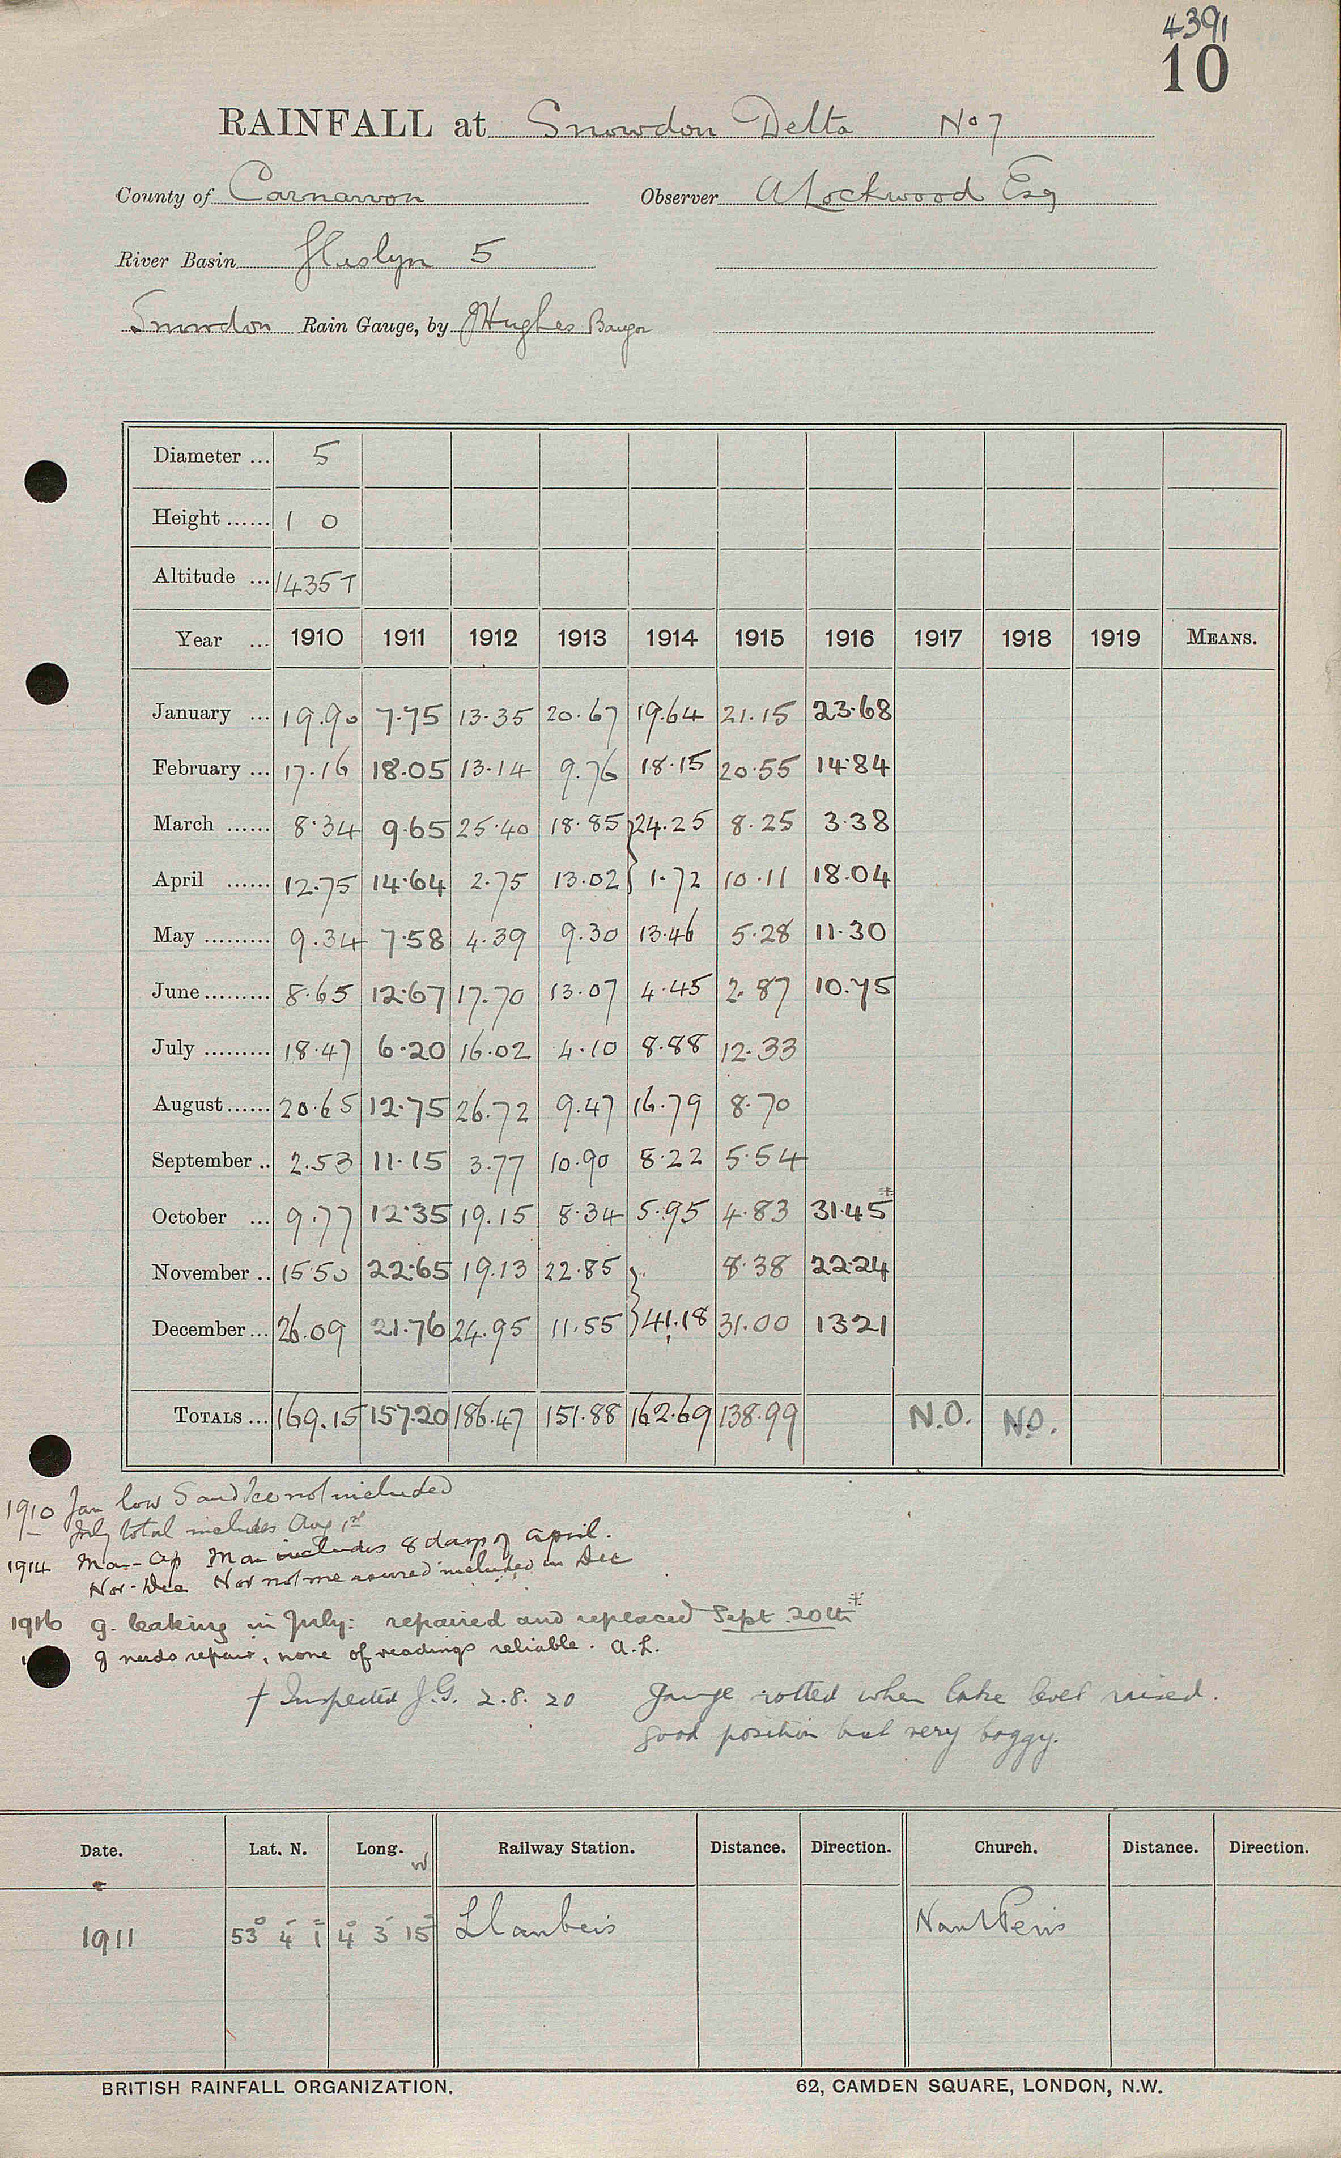 4391
10
RAINFALL at Snowdon Delta No 7
County of Carnarvon Observer A Lockwood Esq
River Basin Glaslyn 5
Snowdon Rain Gauge, by J Hughes Bangor
Diameter ... 5
Height ...... 1 0
Altitude ... 1435 T
Year ... 1910 1911 1912 1913 1914 1915 1916 1917 1918 1919 MEANS.
January ... 19.90 7.75 13.35 20.67 19.64 21.15 23.68
February ... 17.16 18.05 13.14 9.76 18.15 20.55 14.84
March ...... 8.34 9.65 25.40 18.85 }24.25 8.25 3.38
April ...... 12.75 14.64 2.75 13.02 } 1.72 10.11 18.04
May ......... 9.34 7.58 4.39 9.30 13.46 5.28 11.30
June ......... 8.65 12.67 17.70 13.07 4.45 2.87 10.75
July ......... 18.47 6.20 16.02 4.10 8.88 12.33
August ...... 20.65 12.75 26.72 9.47 16.79 8.70
September .. 2.53 11.15 3.77 10.90 8.22 5.54
October ... 9.77 12.35 19.15 8.34 5.95 4.83 31.45*
November .. 15.50 22.65 19.13 22.85 } 8.38 22.24
December ... 26.09 21.76 24.95 11.55 }41.18 31.00 13.21
TOTALS ... 169.15 157.20 186.47 151.88 162.69 138.99 N.O. N.O.
1910 Jan low S and Ice not included
July total includes Aug 1st
1914 Mar-Ap Mar includes 8 days of April.
Nov-Dec Nov not measured included in Dec
1916 g. leaking in July: repaired and replaced Sept 20th*
g needs repair, none of readings reliable. A.L.
† Inspected J.G. 2.8.20 Gauge rotted when lake level raised.
good position but very boggy.
Date. Lat. N. Long. W Railway Station. Distance. Direction. Church. Distance. Direction.
1911 53° 4′ 1″ 4° 3′ 15″ Llanberis Nant Peris
BRITISH RAINFALL ORGANIZATION. 62, CAMDEN SQUARE, LONDON, N.W.